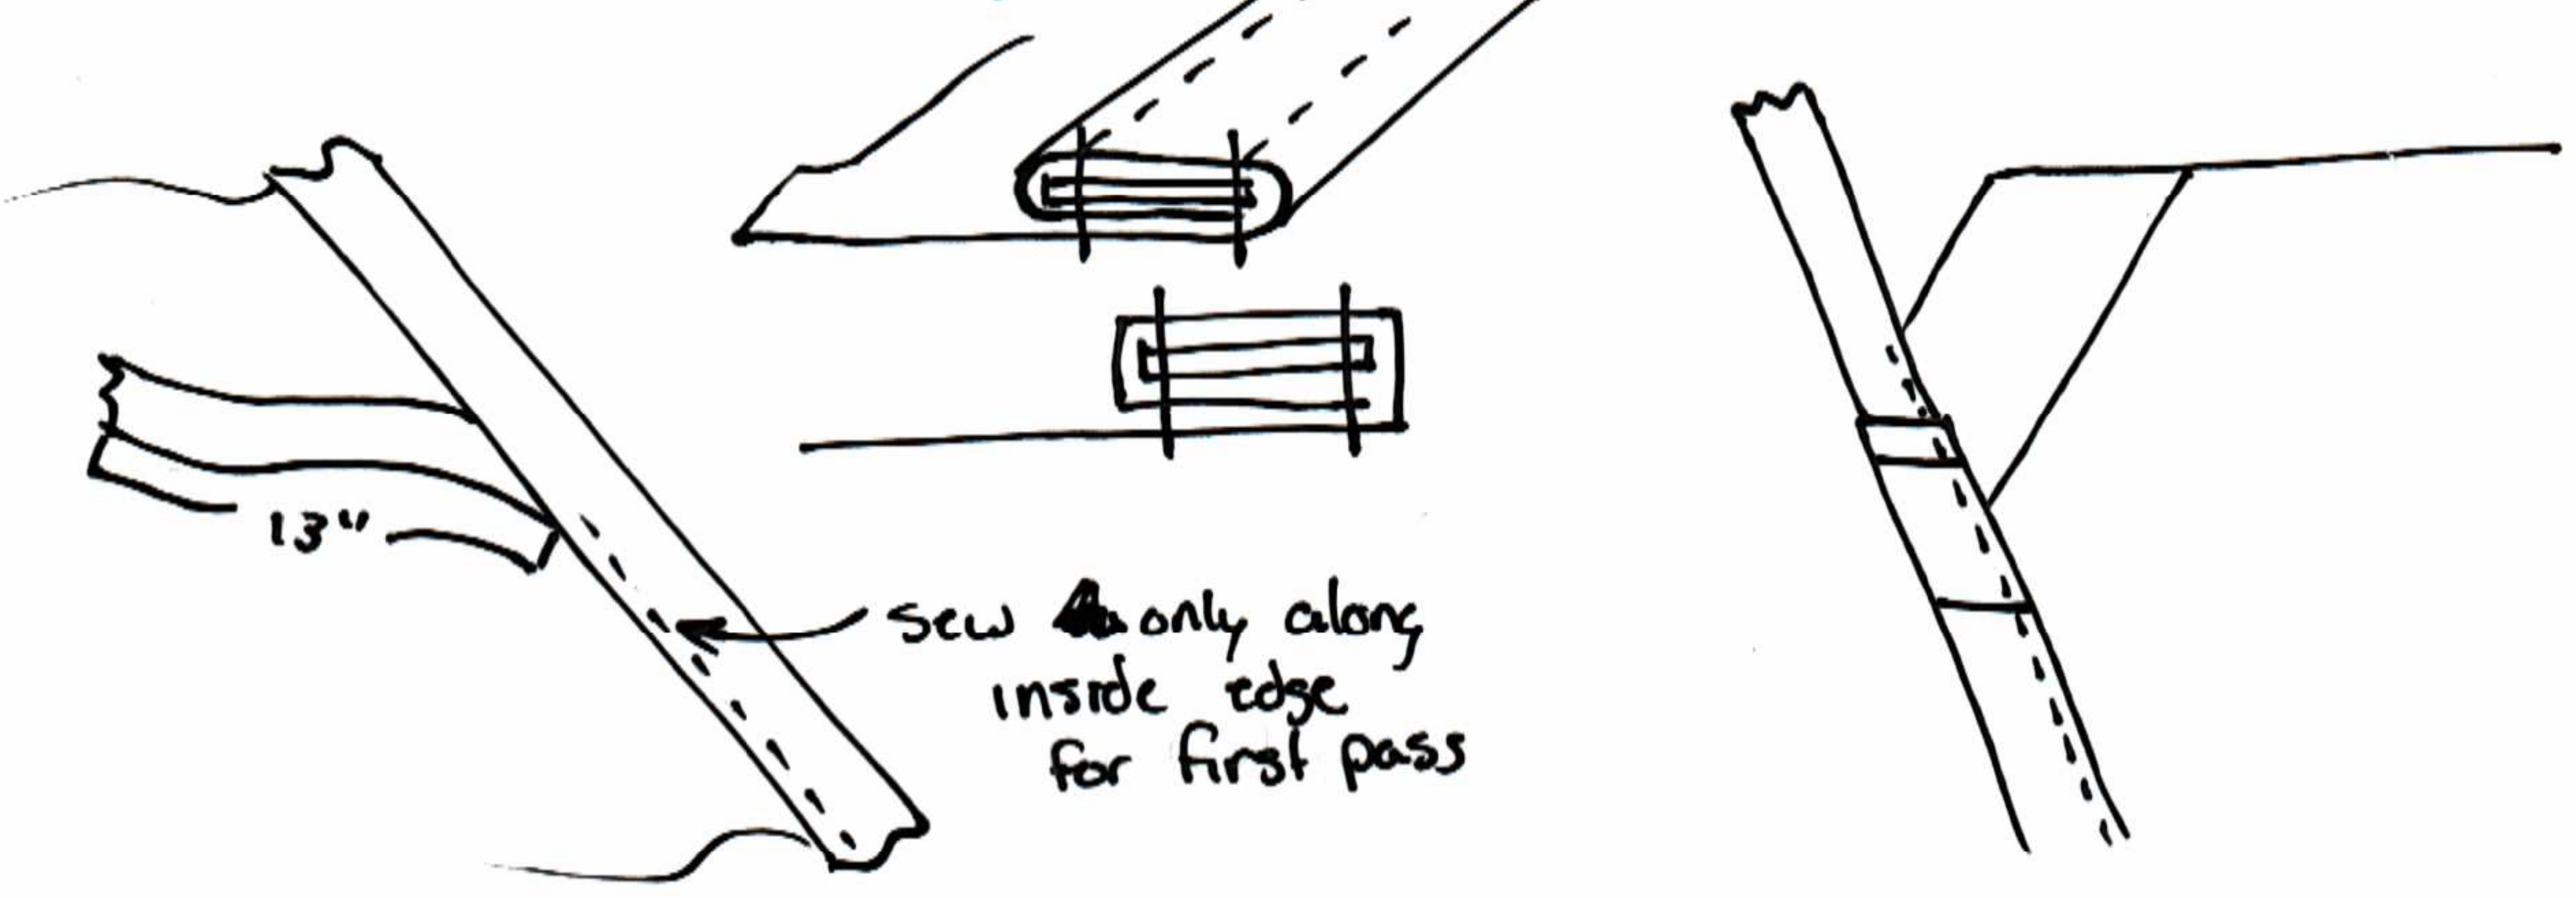 13"
sew only along
inside edge
for first pass